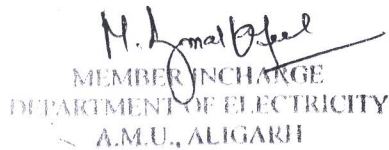 M.
MEMBER INCHARGE
DEPARTMENT OF ELECTRICITY
A.M.U., ALIGARH